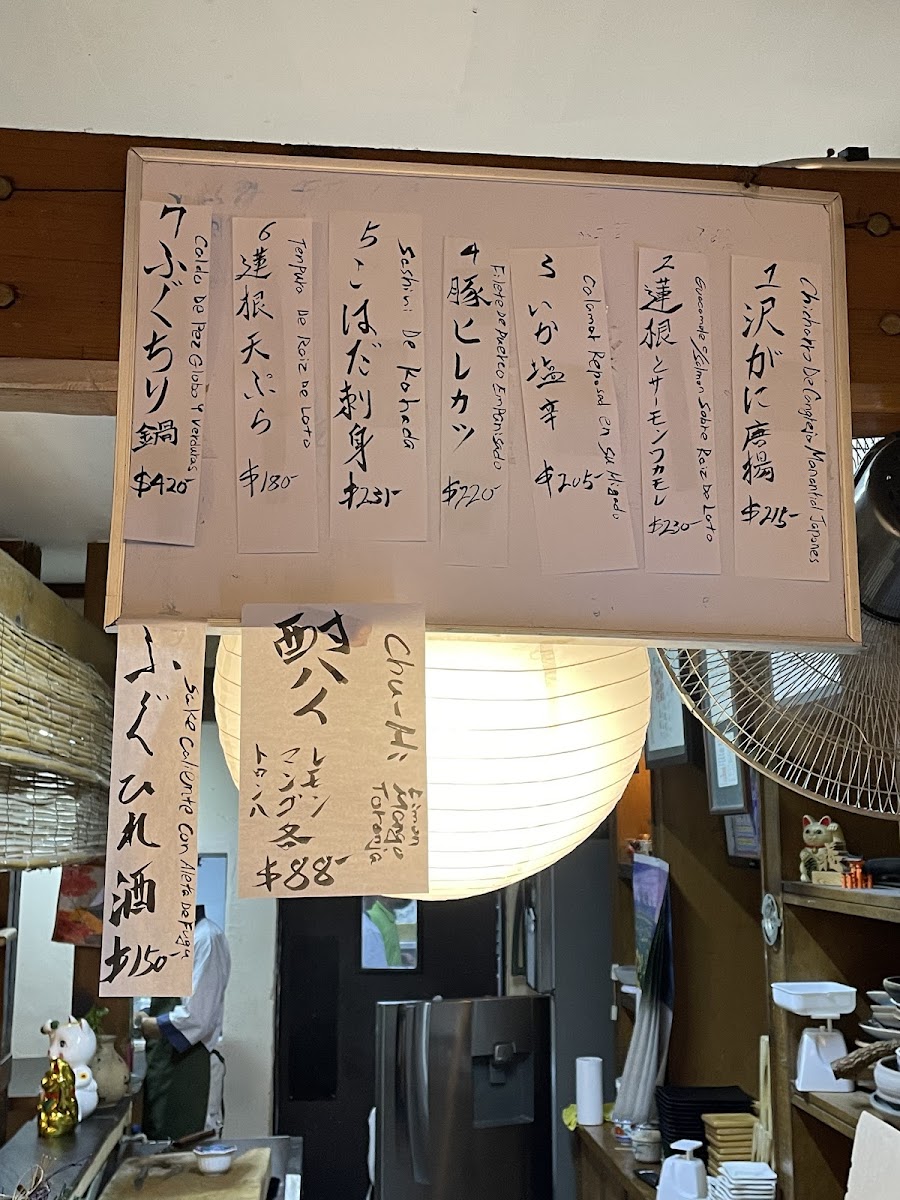 1 沢がに唐揚 $215-
Chicharro De Cangrejo Manantial Japones
2 蓮根とサーモンワカモレ $230-
Guacamole/Salmon Sobre Raiz De Loto
3 いか塩辛 $205-
Calamar Reposad en su Higado
4 豚ヒレカツ $220-
Filete De Puerco Empanisado
5 こはだ刺身 $231-
Sashimi De Kohada
6 蓮根天ぷら $180-
Tenpura De Raiz De Loto
7 ふぐちり鍋 $420-
Caldo De Pez Globo Y Verduras
酎ハイ
Chu-Hi
レモン
マンゴ
トロンハ
各 $88-
Limon
Mango
Toronja
ふぐひれ酒 $150-
Sake Caliente Con Aleta De Fugu